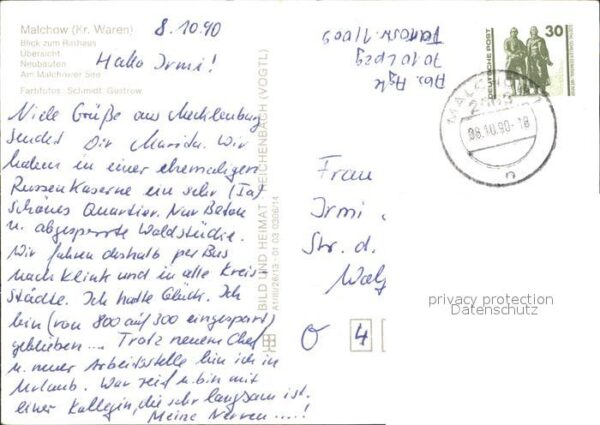 Malchow (Kr. Waren)
Blick zum Rathaus
Übersicht
Neubauten
Am Malchower See
Farbfotos: Schmidt, Güstrow
8.10.90
Hallo Irmi!
Viele Grüße aus Mecklenburg
sendet Dir Marita. Wir
haben in einer ehemaligen
Russenkaserne ein sehr (Ia)
schönes Quartier. Nur Beton
u. abgesperrte Waldstücke.
Wir fahren deshalb per Bus
nach Klink und in alle Kreis-
städte. Ich hatte Glück. Ich
bin (von 800 auf 300 eingespart)
geblieben... Trotz neuem Chef
u. neuer Arbeitsstelle bin ich in
Urlaub. War reif u. bin mit
einer Kollegin, die sehr langsam ist.
Meine Nerven ....!
BILD UND HEIMAT REICHENBACH (VOGTL)
A1/III/26/13 01 03 0306/14
Abs.
7010 Lpzg
DEUTSCHE POST
30
MALCHOW
08.10.90-18
n
Frau
Irmi
Str. d.
O 4
privacy protection
Datenschutz